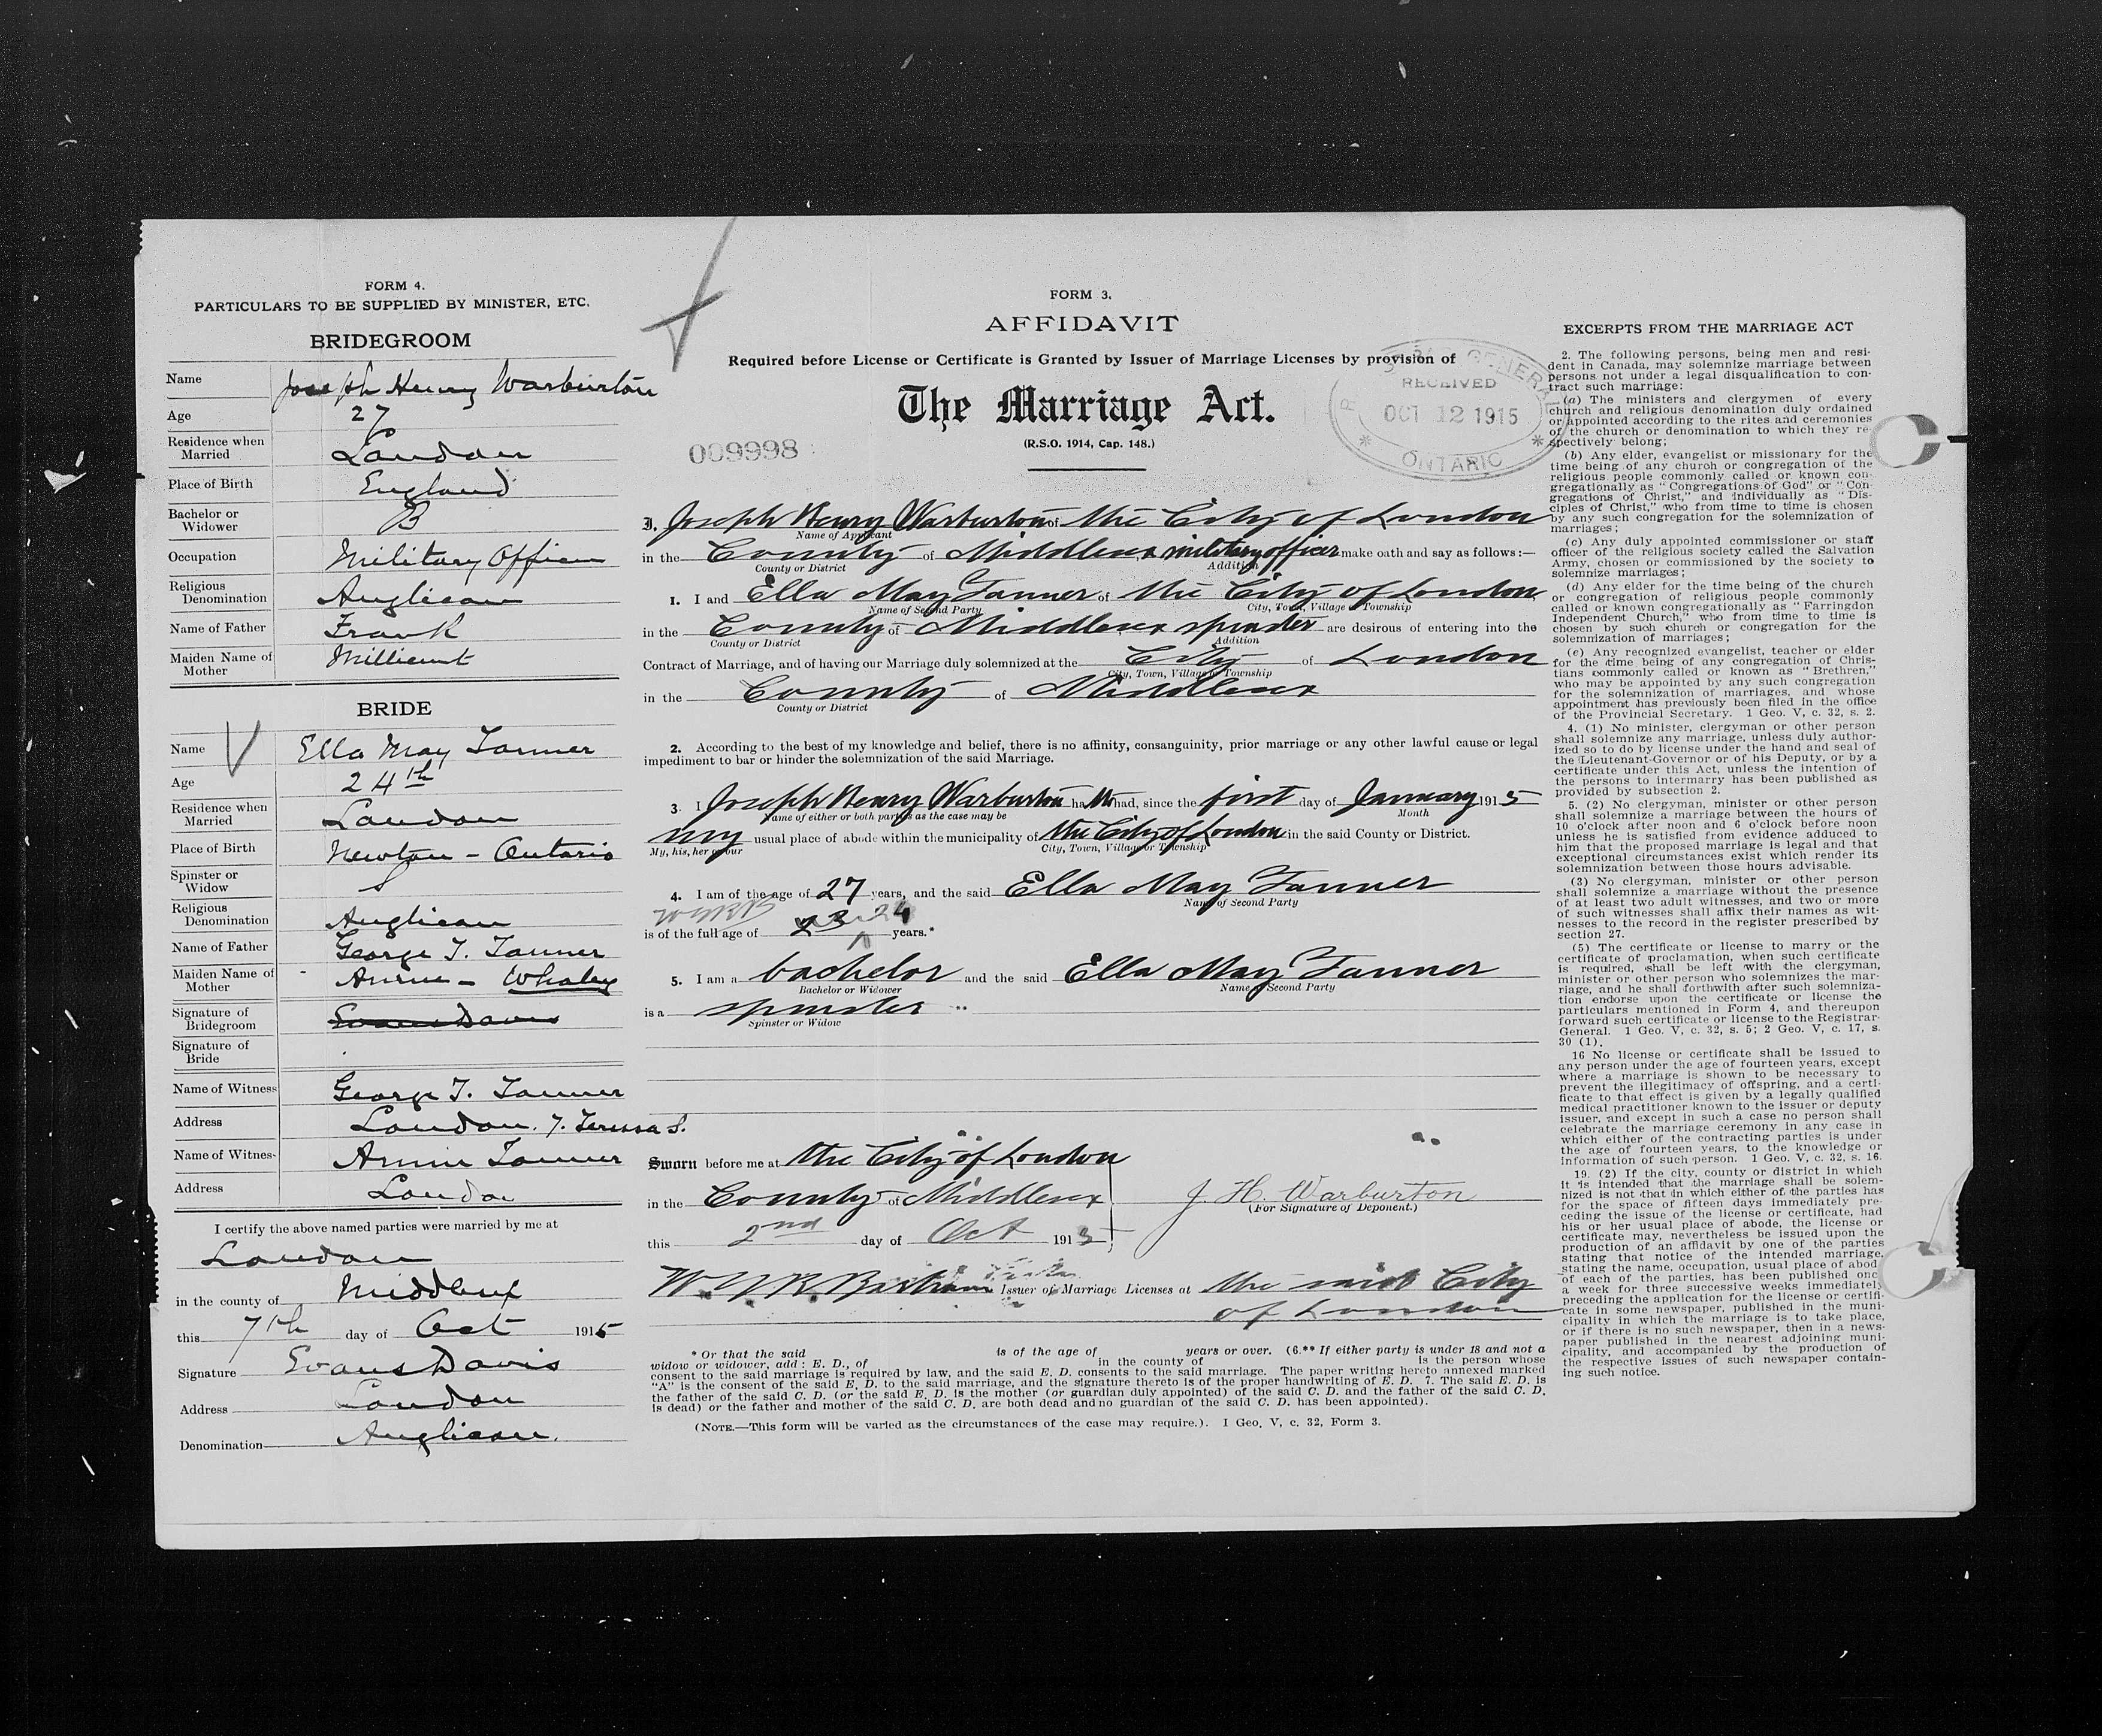 FORM 4.
PARTICULARS TO BE SUPPLIED BY MINISTER, ETC.
BRIDEGROOM
Name Joseph Henry Warburton
Age 27
Residence when Married London
Place of Birth England
Bachelor or Widower B
Occupation Military Officer
Religious Denomination Anglican
Name of Father Frank
Maiden Name of Mother Millicent
BRIDE
Name Ella May Tanner
Age 24th
Residence when Married London
Place of Birth Newton - Ontario
Spinster or Widow S
Religious Denomination Anglican
Name of Father George T. Tanner
Maiden Name of Mother Annie - Whaley
Signature of Bridegroom Evans Davis
Signature of Bride
Name of Witness George T. Tanner
Address London. 7. Teresa S.
Name of Witness Annie Tanner
Address London
I certify the above named parties were married by me at
London
in the county of Middlesex
this 7th day of Oct 1915
Signature Evans Davis
Address London
Denomination Anglican.
FORM 3.
AFFIDAVIT
Required before License or Certificate is Granted by Issuer of Marriage Licenses by provision of
The Marriage Act.
(R.S.O. 1914, Cap. 148.)
009998
GENERAL
RECEIVED
OCT 12 1915
ONTARIO
I, Joseph Henry Warburton of the City of London
Name of Applicant
in the County of Middlesex, military officer make oath and say as follows:—
County or District Addition
1. I and Ella May Tanner of the City of London
Name of Second Party City, Town, Village or Township
in the County of Middlesex spinster are desirous of entering into the
County or District Addition
Contract of Marriage, and of having our Marriage duly solemnized at the City of London
City, Town, Village or Township
in the County of Middlesex
County or District
2. According to the best of my knowledge and belief, there is no affinity, consanguinity, prior marriage or any other lawful cause or legal
impediment to bar or hinder the solemnization of the said Marriage.
3. I Joseph Henry Warburton ha had, since the first day of January 1915
Name of either or both parties as the case may be Month
my usual place of abode within the municipality of the City of London in the said County or District.
My, his, her or our City, Town, Village or Township
4. I am of the age of 27 years, and the said Ella May Tanner
Name of Second Party
is of the full age of 23 24 years.*
5. I am a bachelor and the said Ella May Tanner
Bachelor or Widower Name of Second Party
is a spinster
Spinster or Widow
Sworn before me at the City of London
in the County of Middlesex
J. H. Warburton
(For Signature of Deponent.)
this 2nd day of Oct 1915
W. Bartram Issuer of Marriage Licenses at the said City
of London
* Or that the said is of the age of years or over. (6.** If either party is under 18 and not a
widow or widower, add: E. D., of in the county of is the person whose
consent to the said marriage is required by law, and the said E. D. consents to the said marriage. The paper writing hereto annexed marked
"A" is the consent of the said E. D. to the said marriage, and the signature thereto is of the proper handwriting of E. D. 7. The said E. D. is
the father of the said C. D. (or the said E. D. is the mother (or guardian duly appointed) of the said C. D. and the father of the said C. D.
is dead) or the father and mother of the said C. D. are both dead and no guardian of the said C. D. has been appointed).
(NOTE.—This form will be varied as the circumstances of the case may require.). 1 Geo. V, c. 32, Form 3.
EXCERPTS FROM THE MARRIAGE ACT
2. The following persons, being men and resi-
dent in Canada, may solemnize marriage between
persons not under a legal disqualification to con-
tract such marriage:
(a) The ministers and clergymen of every
church and religious denomination duly ordained
or appointed according to the rites and ceremonies
of the church or denomination to which they re-
spectively belong;
(b) Any elder, evangelist or missionary for the
time being of any church or congregation of the
religious people commonly called or known con-
gregationally as "Congregations of God" or "Con-
gregations of Christ," and individually as "Dis-
ciples of Christ," who from time to time is chosen
by any such congregation for the solemnization of
marriages;
(c) Any duly appointed commissioner or staff
officer of the religious society called the Salvation
Army, chosen or commissioned by the society to
solemnize marriages;
(d) Any elder for the time being of the church
or congregation of religious people commonly
called or known congregationally as "Farringdon
Independent Church," who from time to time is
chosen by such church or congregation for the
solemnization of marriages;
(e) Any recognized evangelist, teacher or elder
for the time being of any congregation of Chris-
tians commonly called or known as "Brethren,"
who may be appointed by any such congregation
for the solemnization of marriages, and whose
appointment has previously been filed in the office
of the Provincial Secretary. 1 Geo. V, c. 32, s. 2.
4. (1) No minister, clergyman or other person
shall solemnize any marriage, unless duly author-
ized so to do by license under the hand and seal of
the Lieutenant-Governor or of his Deputy, or by a
certificate under this Act, unless the intention of
the persons to intermarry has been published as
provided by subsection 2.
5. (2) No clergyman, minister or other person
shall solemnize a marriage between the hours of
10 o'clock after noon and 6 o'clock before noon
unless he is satisfied from evidence adduced to
him that the proposed marriage is legal and that
exceptional circumstances exist which render its
solemnization between those hours advisable.
(3) No clergyman, minister or other person
shall solemnize a marriage without the presence
of at least two adult witnesses, and two or more
of such witnesses shall affix their names as wit-
nesses to the record in the register prescribed by
section 27.
(5) The certificate or license to marry or the
certificate of proclamation, when such certificate
is required, shall be left with the clergyman,
minister or other person who solemnizes the mar-
riage, and he shall forthwith after such solemniza-
tion endorse upon the certificate or license the
particulars mentioned in Form 4, and thereupon
forward such certificate or license to the Registrar-
General. 1 Geo. V, c. 32, s. 5; 2 Geo. V, c. 17, s.
30 (1).
16 No license or certificate shall be issued to
any person under the age of fourteen years, except
where a marriage is shown to be necessary to
prevent the illegitimacy of offspring, and a certi-
ficate to that effect is given by a legally qualified
medical practitioner known to the issuer or deputy
issuer, and except in such a case no person shall
celebrate the marriage ceremony in any case in
which either of the contracting parties is under
the age of fourteen years, to the knowledge or
information of such person. 1 Geo. V, c. 32, s. 16.
19. (2) If the city, county or district in which
it is intended that the marriage shall be solem-
nized is not that in which either of the parties has
for the space of fifteen days immediately pre-
ceding the issue of the license or certificate, had
his or her usual place of abode, the license or
certificate may, nevertheless be issued upon the
production of an affidavit by one of the parties
stating that notice of the intended marriage,
stating the name, occupation, usual place of abod
of each of the parties, has been published onc
a week for three successive weeks immediately
preceding the application for the license or certifi-
cate in some newspaper, published in the muni-
cipality in which the marriage is to take place,
or if there is no such newspaper, then in a news-
paper published in the nearest adjoining muni-
cipality, and accompanied by the production of
the respective issues of such newspaper contain-
ing such notice.